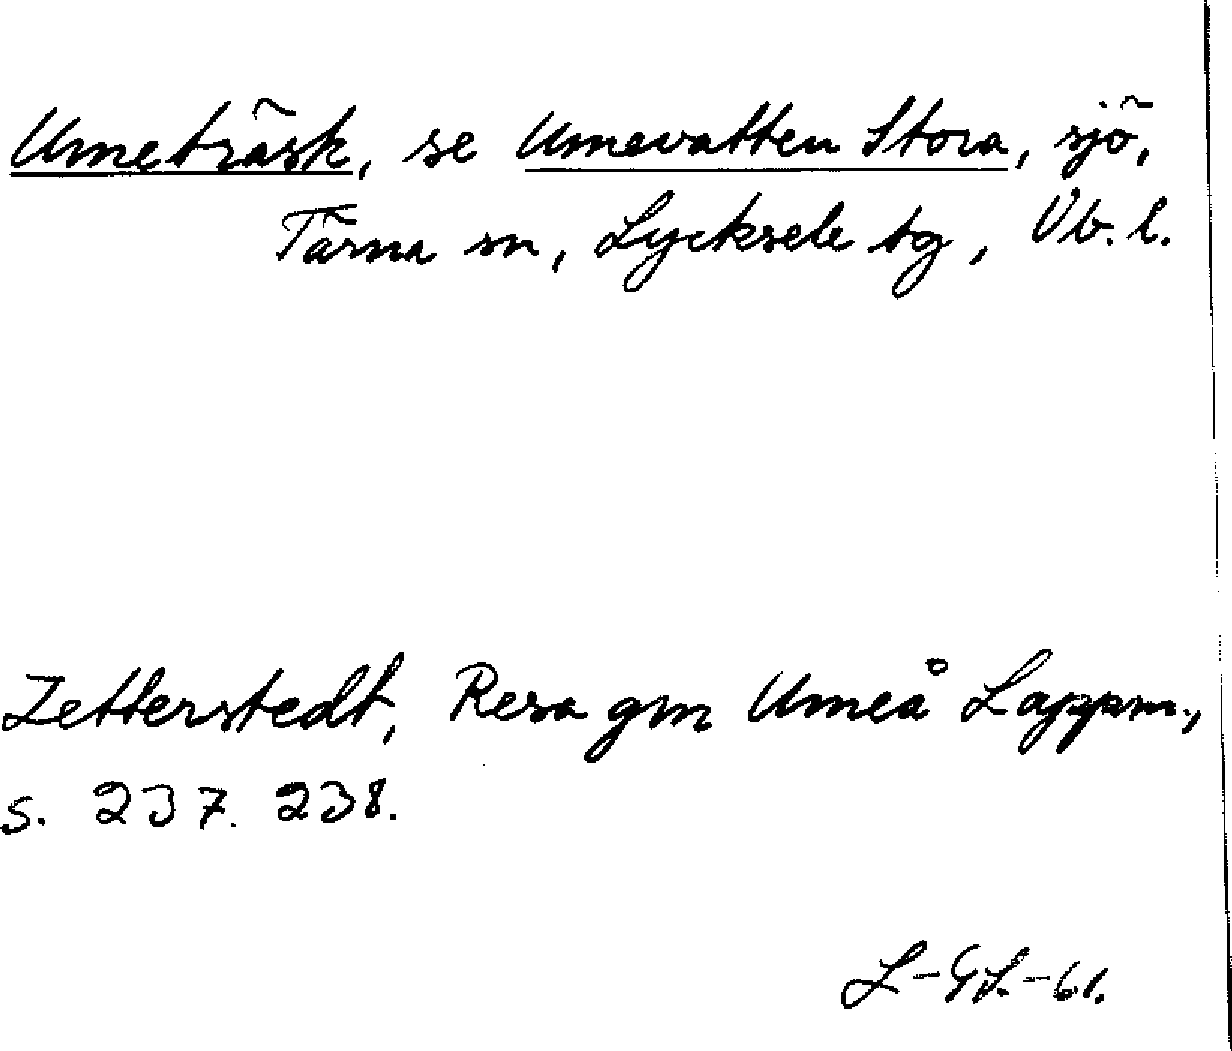 Umeträsk, se Umevatten Stora, sjö,
Tärna sn, Lycksele tg, Vb. l.
Zetterstedt, Resa gm Umeå Lappm.,
s. 237. 238.
L-GL-61.